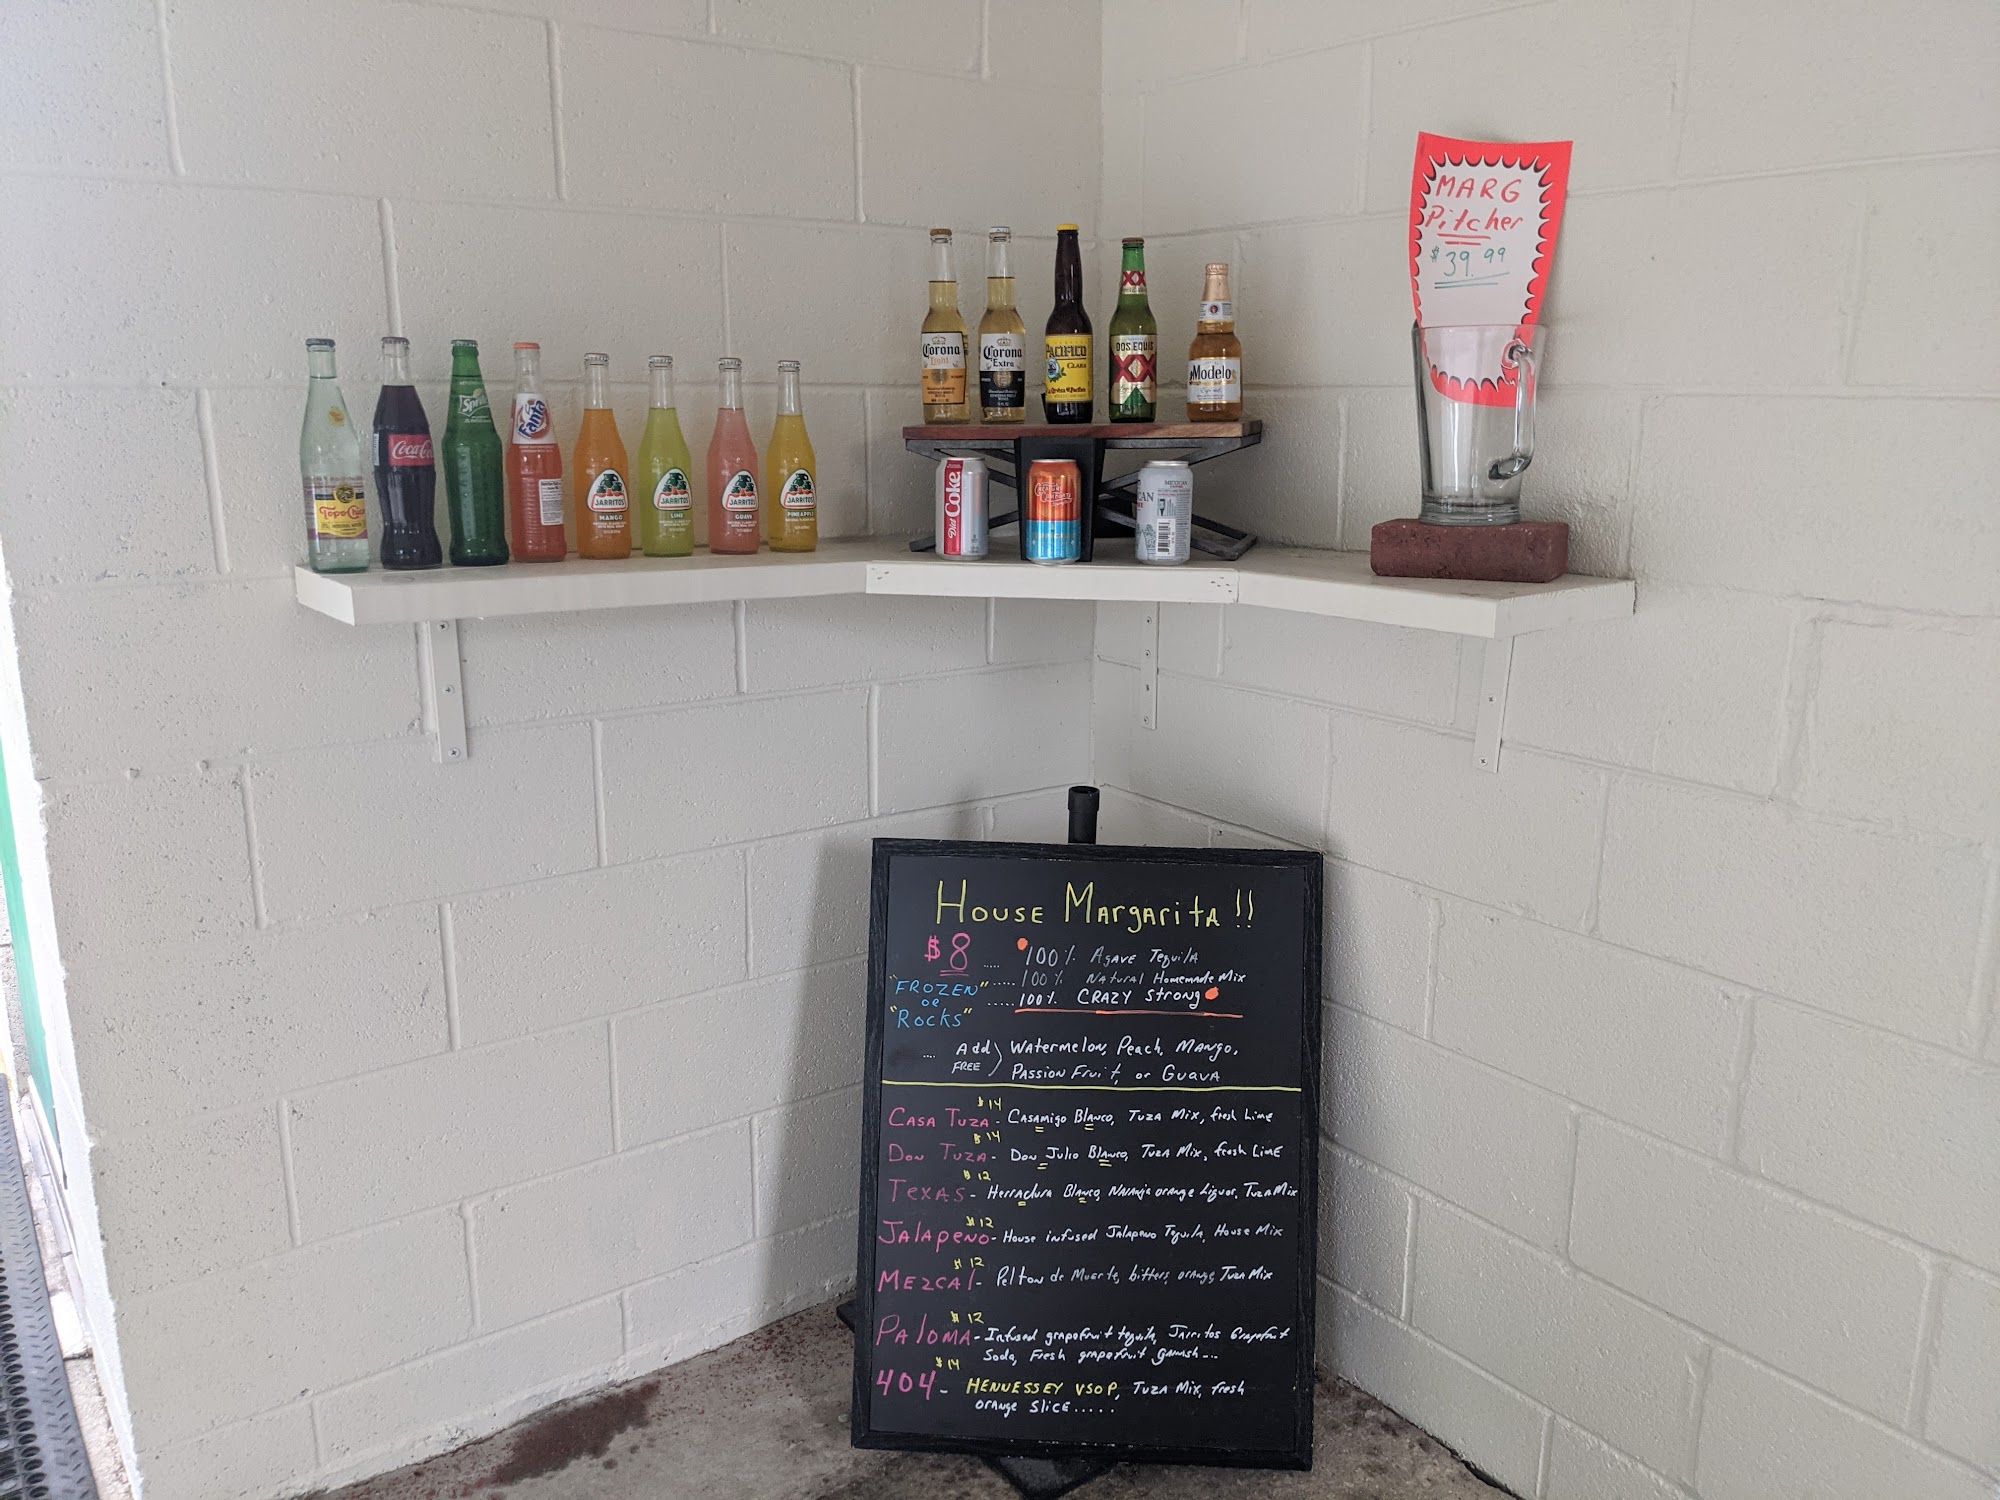 MARG
Pitcher
$39.99
Corona
Light
Corona
Extra
PACIFICO
CLARA
DOS EQUIS
XX
Modelo
Topo Chico
Coca-Cola
Sprite
Fanta
JARRITOS
MANGO
JARRITOS
LIME
JARRITOS
GUAVA
JARRITOS
PINEAPPLE
Diet Coke
MEXICAN
HOUSE MARGARITA!!
$8 ..... 100% AGAVE TEQUILA
"FROZEN" ..... 100% NATURAL Homemade Mix
OR ..... 100% CRAZY STRONG
"ROCKS"
.... Add FREE) WATERMELON, PEACH, MANGO,
PASSION FRUIT, or GUAVA
CASA TUZA $14 - CASAMIGO BLANCO, TUZA MIX, fresh Lime
DON TUZA $14 - DON JULIO BLANCO, TUZA MIX, fresh LIME
TEXAS $12 - Herradura BLANCO, NARANJA orange Liquor, TUZA MIX
JALAPENO $12 - House infused JALAPENO Tequila, House Mix
MEZCAL $12 - Pelton de Muerte, bitters, orange, TUZA MIX
PALOMA $12 - Infused grapefruit tequila, JARRITOS Grapefruit
Soda, Fresh grapefruit GARNISH...
404 $14 - HENNESSEY VSOP, TUZA MIX, fresh
orange SLICE.....